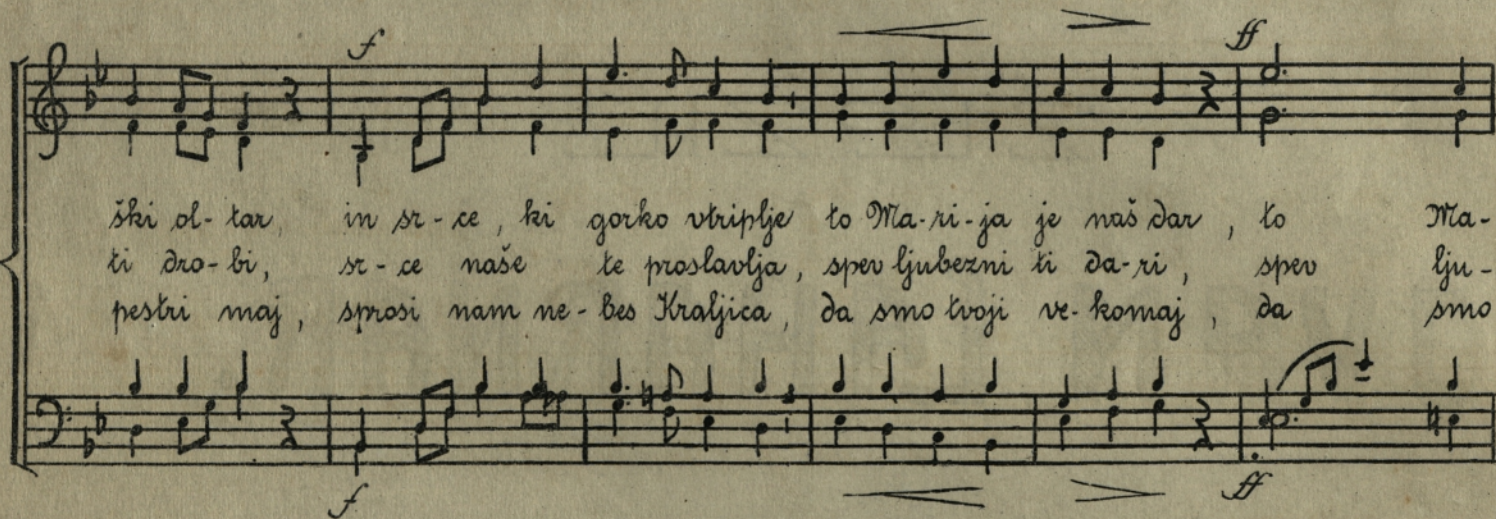 f ff
ški ol-tar, in sr-ce, ki gorko vtriplje to Ma-ri-ja je naš dar, to Ma-
ti dro-bi, sr-ce naše te proslavlja, spev ljubezni ti da-ri, spev lju-
pestri maj, sprosi nam ne-bes Kraljica, da smo tvoji ve-komaj, da smo
f ff